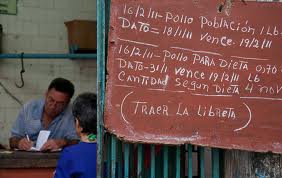 16/2/11-Pollo Población 1 Lb
DATO-18/1/11 vence 19/2/11
16/2/11-Pollo PARA DIETA 0.70
DATO-3/1/1 vence 19/2/11 Lb.
Cantidad segun Dieta 4 nov
(TRAER LA LIBRETA)